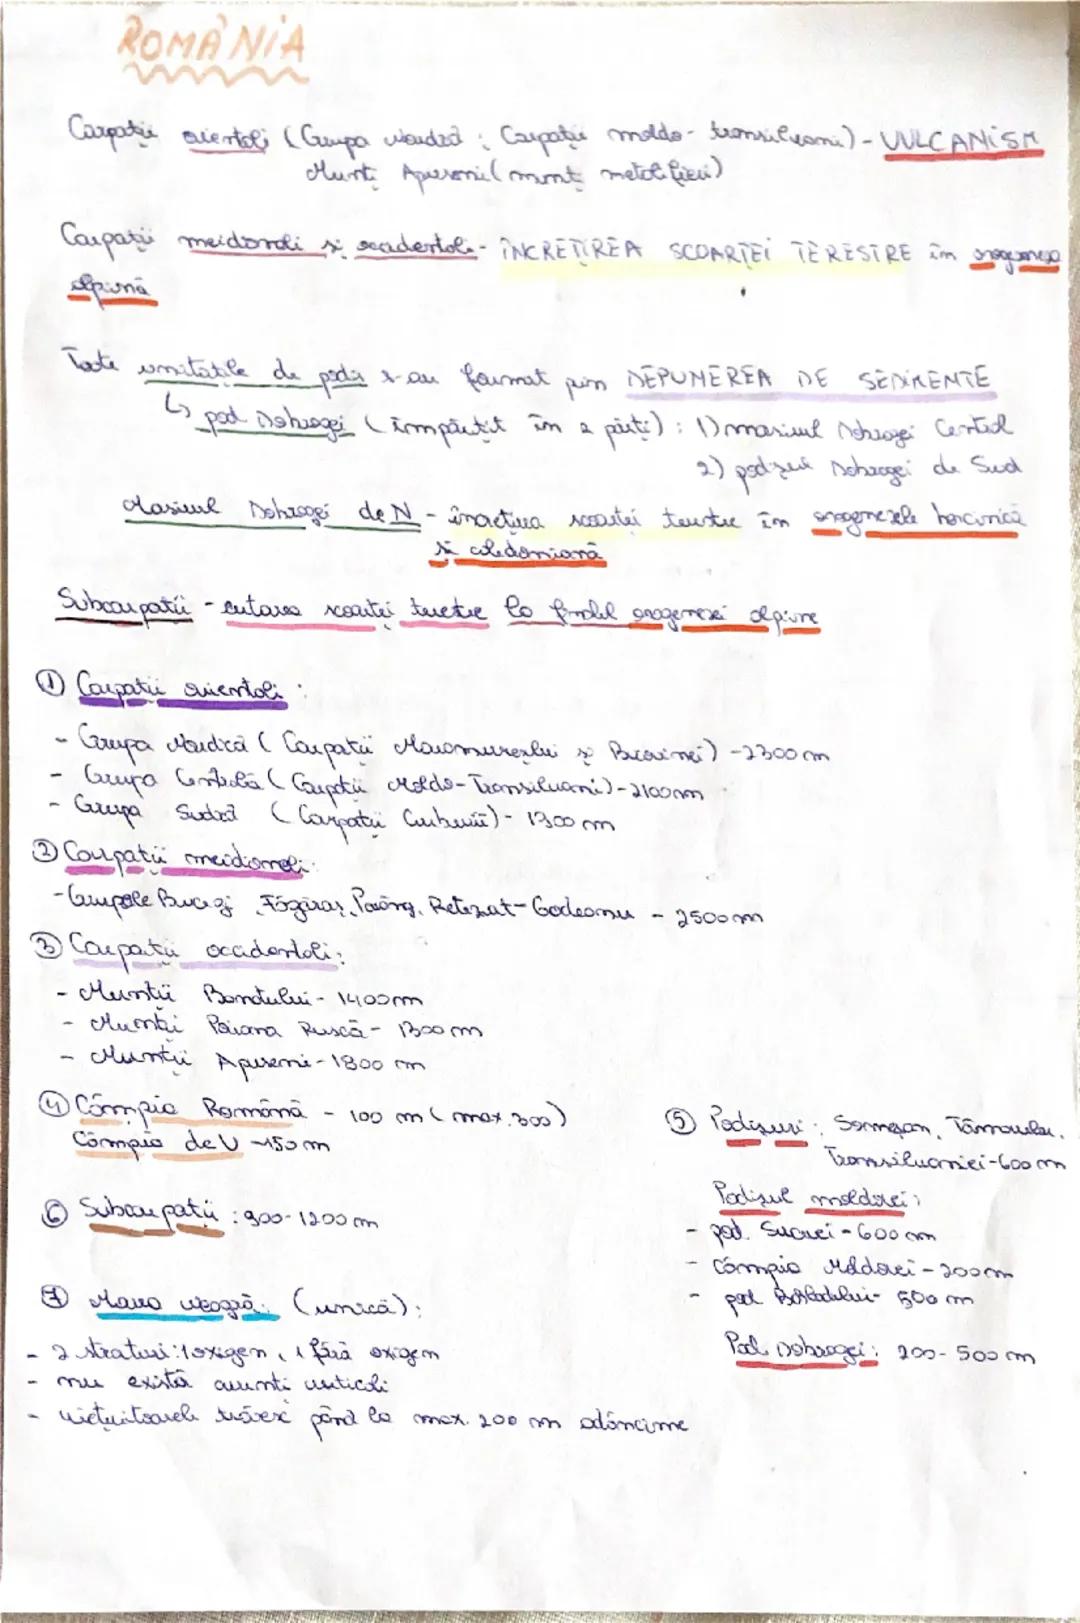 ROMÂNIA
Carpații orientali (Grupa nordică ; Carpații moldo-transilvani) - VULCANISM
Munți Apuseni (munți metaliferi)
Carpații meridionali și occidentali - ÎNCREȚIREA SCOARȚEI TERESTRE în orogeneza
alpină
Toate unitățile de podiș s-au format prin DEPUNEREA DE SEDIMENTE
↳ pod. Dobrogei (împărțit în 2 părți) : 1) masivul Dobrogei Central
2) podișul Dobrogei de Sud
Masivul Dobrogei de N - încrețirea scoarței terestre în orogenezele hercinică
și caledoniană
Subcarpații - cutarea scoarței terestre la finalul orogenezei alpine
① Carpații orientali :
- Grupa Nordică ( Carpații Maramureșului și Bucovinei) - 2300 m
- Grupa Centrală ( Carpații Moldo-Transilvani) - 2100 m
- Grupa Sudică ( Carpații Curburii) - 1300 m
② Carpații meridionali:
- Grupele Bucegi, Făgăraș, Parâng, Retezat-Godeanu - 2500 m
③ Carpații occidentali:
- Munții Banatului - 1400 m
- Munții Poiana Ruscă - 1300 m
- Munții Apuseni - 1800 m
④ Câmpia Română - 100 m ( max. 300)
Câmpia de V ~150 m
⑤ Podișuri : Someșan, Târnavelor,
Transilvaniei - 600 m
Podișul moldovei:
- pod. Sucevei - 600 m
- Câmpia Moldovei - 200 m
- pod Bârladului - 500 m
Pod. Dobrogei: 200-500 m
⑥ Subcarpații : 900-1200 m
⑦ Marea neagră: (unică):
- 2 straturi: 1 oxigen, 1 fără oxigen
- nu există curenți verticali
- viețuitoarele trăiesc până la max. 200 m adâncime